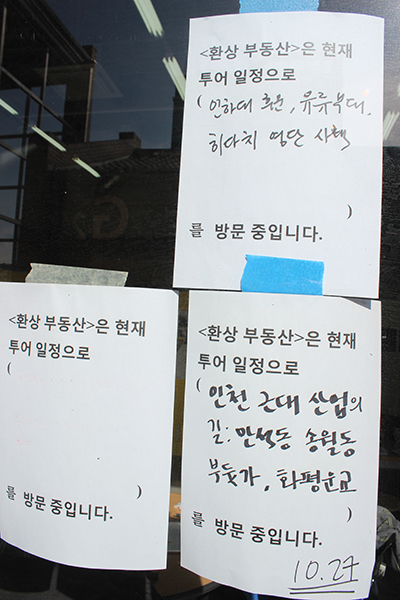 <환상 부동산>은 현재
투어 일정으로
( 인하대 후문, 유류부대,
히다치 영단 사택
)
를 방문 중입니다.
<환상 부동산>은 현재
투어 일정으로
(
)
를 방문 중입니다.
<환상 부동산>은 현재
투어 일정으로
( 인천 근대 산업의
길: 만석동 송월동
부둣가, 화평운교
)
를 방문 중입니다.
10.27